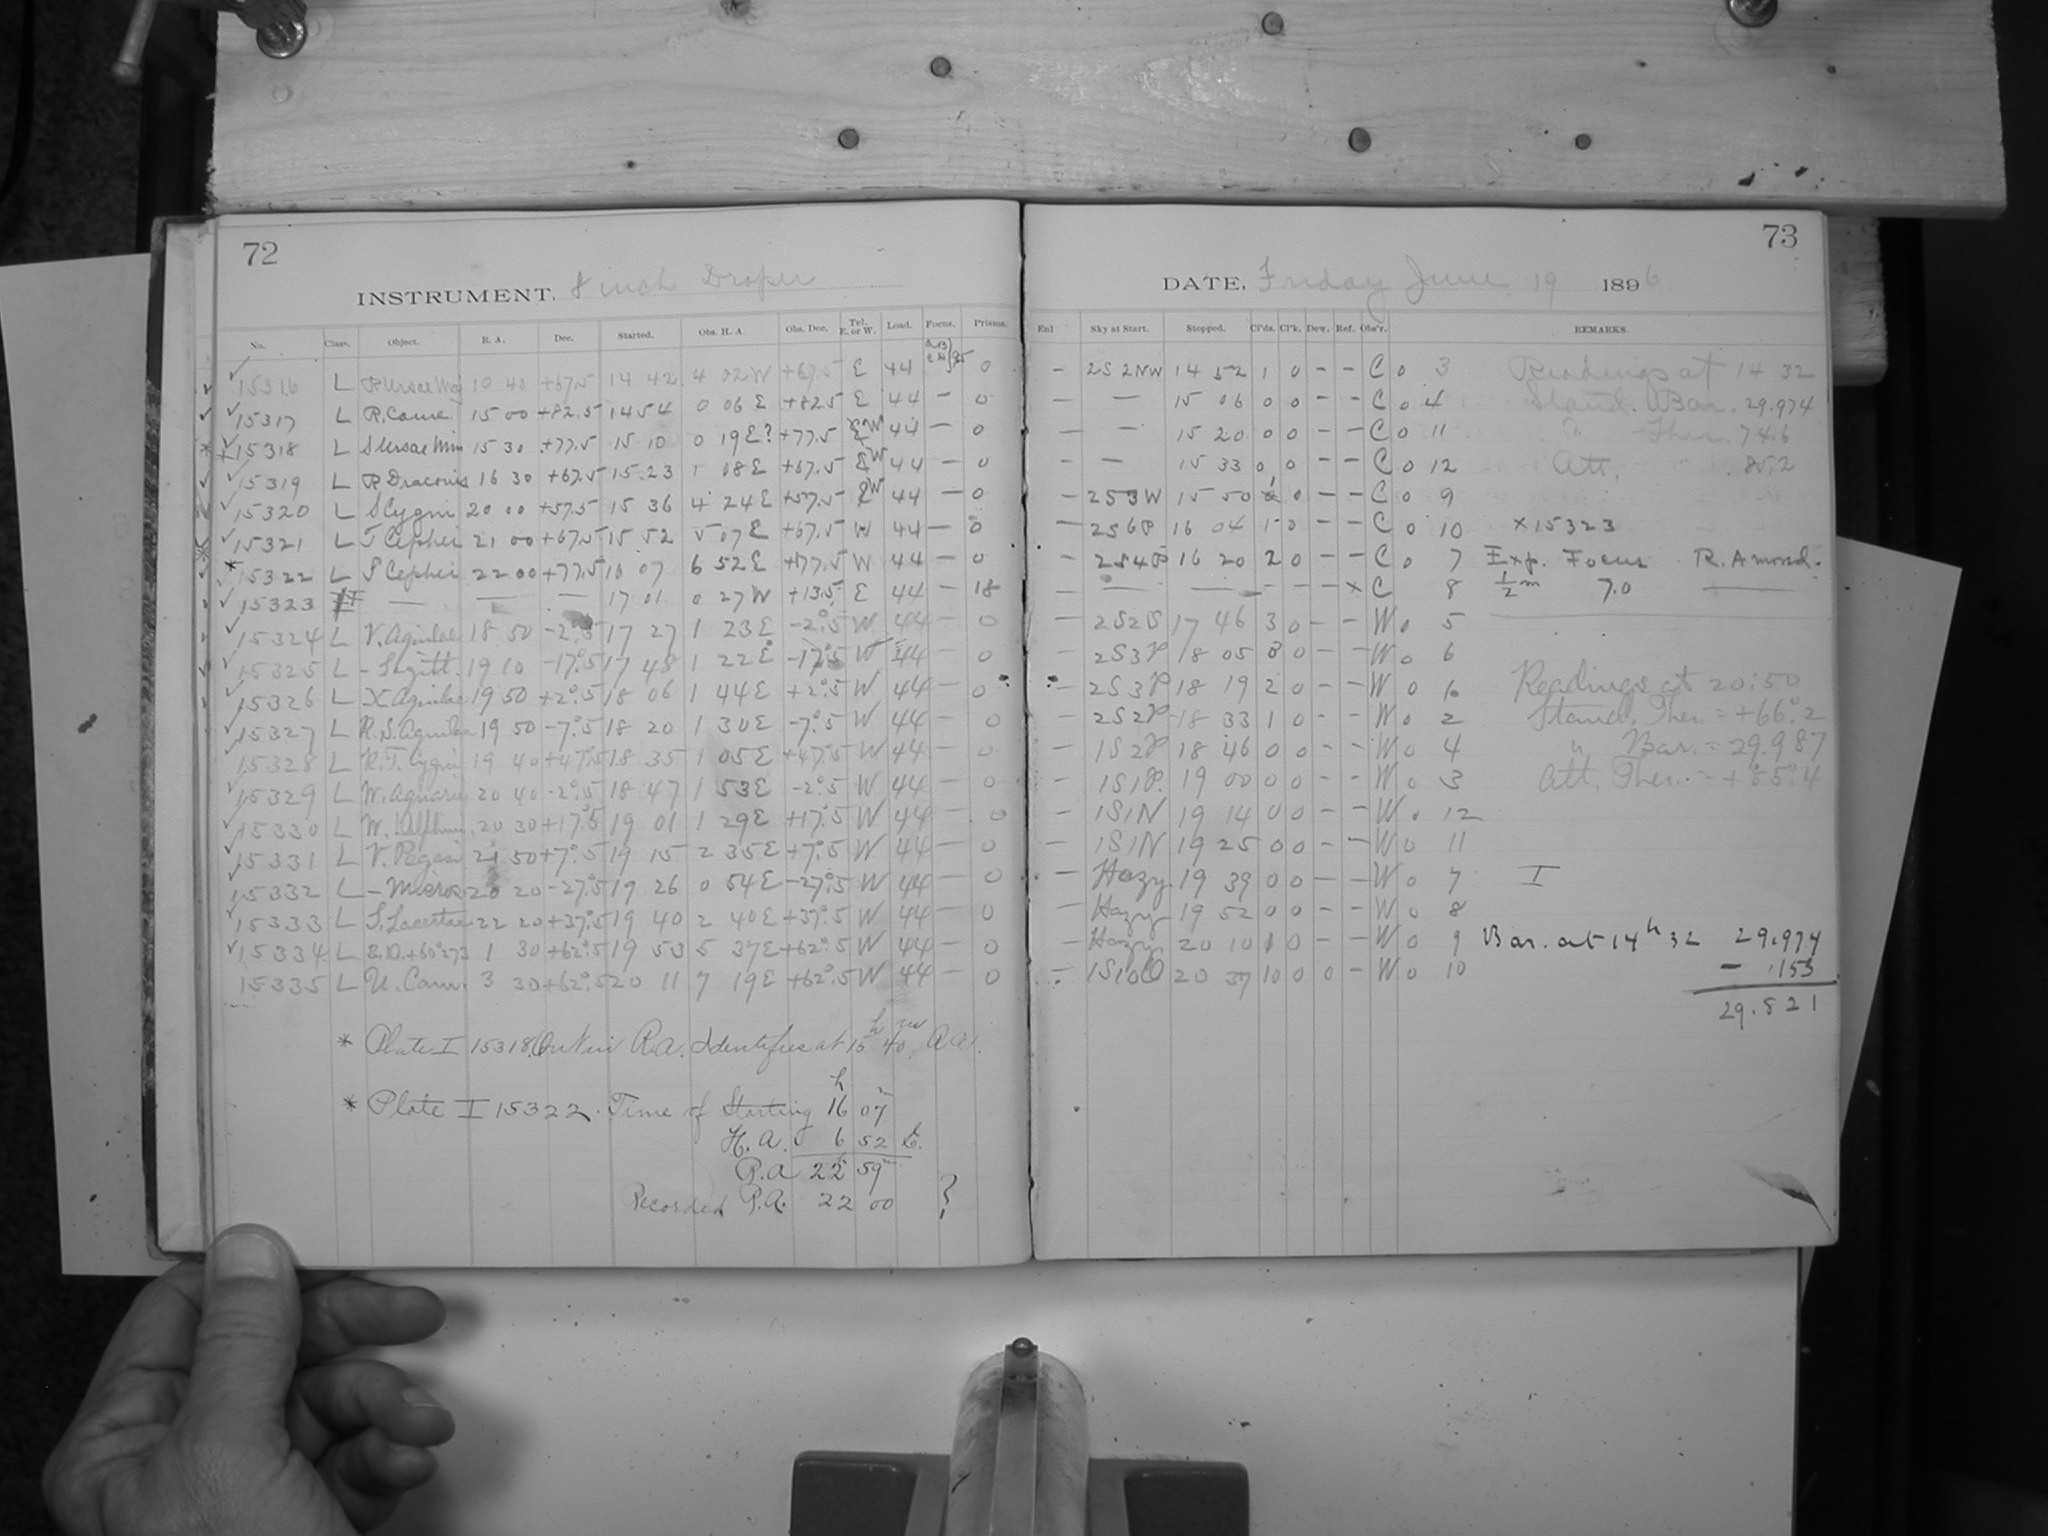 72
INSTRUMENT, 8 inch Draper
No. Class. Object. R. A. Dec. Started. Obs. H. A. Obs. Dec. Tel. E. or W. Load. Focus. Prisms.
15316 L R Ursae Maj 10 40 +67.5 14 42 4 02 W +67.5 E 44 0
15317 L R. Came. 15 00 +82.5 14 54 0 06 E +82.5 E 44 — 0
* 15318 L S Ursae Min 15 30 +77.5 15 10 0 19 E? +77.5 W 44 — 0
15319 L R Draconis 16 30 +67.5 15 23 1 08 E +67.5 W 44 — 0
15320 L S Cygni 20 00 +57.5 15 36 4 24 E +57.5 W 44 — 0
15321 L T Cephei 21 00 +67.5 15 52 5 07 E +67.5 W 44 — 0
* 15322 L S Cephei 22 00 +77.5 16 07 6 52 E +77.5 W 44 — 0
15323 — — — 17 01 0 27 W +13.5 E 44 — 18
15324 L V. Aquilae 18 50 -2°.5 17 27 1 23 E -2°.5 W 44 — 0
15325 L - Sagitt. 19 10 -17°.5 17 48 1 22 E -17°.5 W 44 — 0
15326 L X Aquilae 19 50 +2°.5 18 06 1 44 E +2°.5 W 44 — 0
15327 L R.S. Aquilae 19 50 -7°.5 18 20 1 30 E -7°.5 W 44 — 0
15328 L R.T. Cygni 19 40 +47°.5 18 35 1 05 E +47°.5 W 44 — 0
15329 L W. Aquarii 20 40 -2°.5 18 47 1 53 E -2°.5 W 44 — 0
15330 L W. 20 30 +17°.5 19 01 1 29 E +17°.5 W 44 — 0
15331 L V. Pegasi 21 50 +7°.5 19 15 2 35 E +7°.5 W 44 — 0
15332 L - Micros 20 20 -27°.5 19 26 0 54 E -27°.5 W 44 — 0
15333 L S. Lacertae 22 20 +37°.5 19 40 2 40 E +37°.5 W 44 — 0
15334 L B.D.+60°273 1 30 +62°.5 19 53 5 37 E +62°.5 W 44 — 0
15335 L U. Cam. 3 30 +62°.5 20 11 7 19 E +62°.5 W 44 — 0
* Plate I 15318 Out in R.A. Identifies at 15h 40m. R.A.
* Plate I 15322. Time of Starting 16h 07m
H. A. 6 52 E.
R.A 22h 59m
Recorded R.A. 22 00 ?
73
DATE, Friday June 19 1896
Enl Sky at Start. Stopped. Cl'ds. Cl'k. Dew. Ref. Obs'r. REMARKS.
— 2S2NW 14 52 1 0 – – C 0 3 Readings at 14 32
— — 15 06 0 0 – – C 0 4 Stand. Bar. 29.974
— — 15 20 0 0 – – C 0 11 " Ther. 74.6
— — 15 33 0 0 – – C 0 12 Att. 85.2
— 2S3W 15 50 1 0 – – C 0 9
— 2S6P 16 04 1 0 – – C 0 10 x15323
— 2S4P 16 20 2 0 – – C 0 7 Exp. Focus R. Amond.
— — — – – – x C 8 1/2 m 7.0 —
— 2S2S 17 46 3 0 – – W 0 5
— 2S3P 18 05 3 0 – – W 0 6
— 2S3P 18 19 2 0 – – W 0 1 Readings at 20:50
— 2S2P 18 33 1 0 – – W 0 2 Stand. Ther. = +66°.2
— 1S2P 18 46 0 0 – – W 0 4 " Bar. = 29.987
— 1S1P. 19 00 0 0 – – W 0 3 Att. Ther. = +85°.4
— 1S1N 19 14 0 0 – – W 0 12
— 1S1N 19 25 0 0 – – W 0 11
— Hazy 19 39 0 0 – – W 0 7 I
— Hazy 19 52 0 0 – – W 0 8
— Hazy 20 10 1 0 – – W 0 9 Bar. at 14h 32 29.974
— 1S10O 20 37 10 0 0 – W 0 10 – .153
29.821